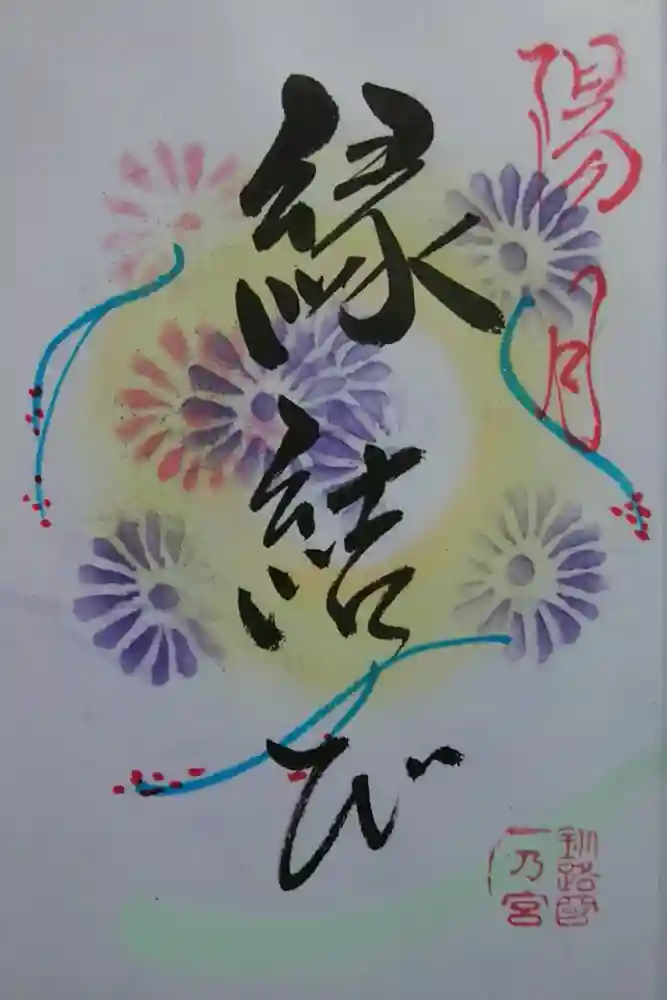 陽月
縁結び
釧路國
一乃宮